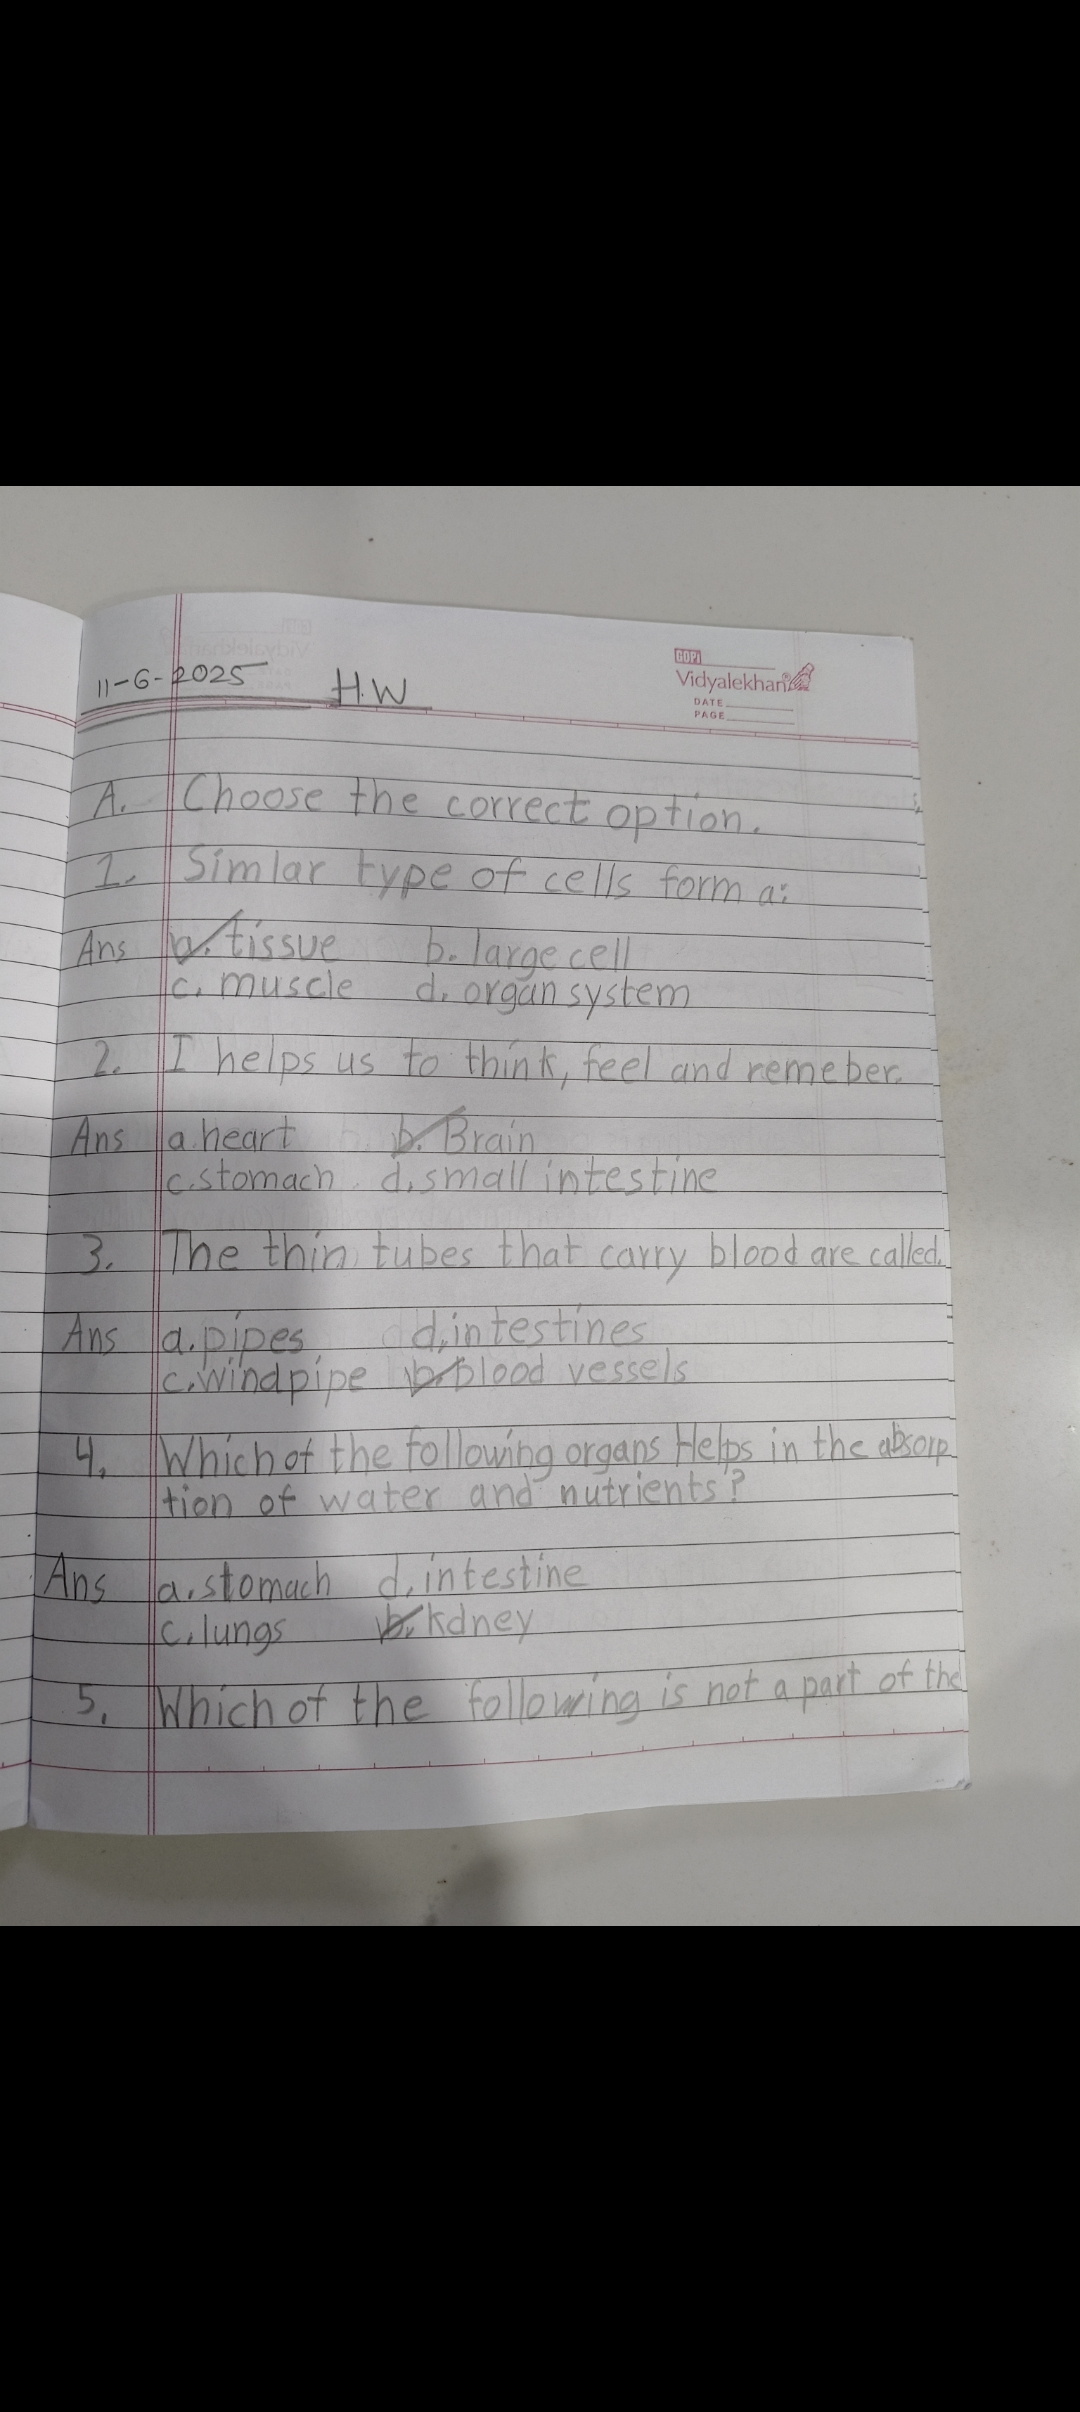 11-6-2025 H.W
GOPI
Vidyalekhan
DATE
PAGE
A. Choose the correct option.
1. Simlar type of cells form a:
Ans a. tissue b. large cell
c. muscle d. organ system
2. I helps us to think, feel and remeber.
Ans a. heart b. Brain
c. stomach d. small intestine
3. The thin tubes that carry blood are called.
Ans a. pipes d. intestines
c. windpipe b. blood vessels
4. Which of the following organs Helps in the absorp
tion of water and nutrients?
Ans a. stomach d. intestine
c. lungs b. kdney
5. Which of the following is not a part of the